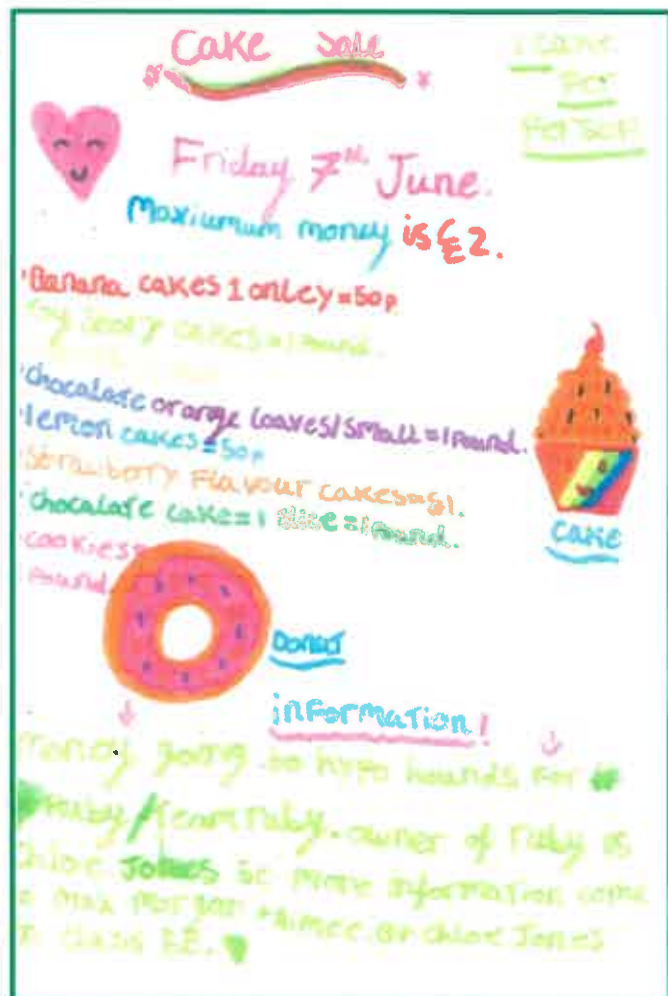 Cake Sale
1 cake
Per
Person
Friday 7th June.
Maxiumum money is £2.
·Banana cakes 1 onley=50p
cakes=1 Pound.
·chocalate orange loaves/small=1 Pound.
·lemon cakes=50p
·Strawbory Flavour cakes=£1.
·chocalate cake=1 slice=1 Pound.
·cookies=
1 Pound.
cake
Donut
inFormation!
money going to hypo hounds For
Ruby/Team Ruby. owner of Ruby is
Chloe Jones more information come
to max morgan Aimee or chloe Jones
class